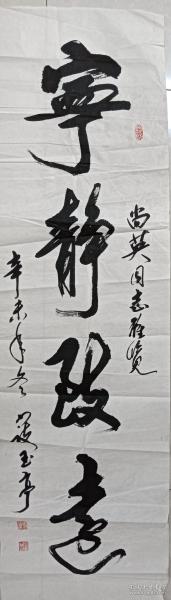 寧靜致遠
尚英同志雅览
辛未年冬
玉亭